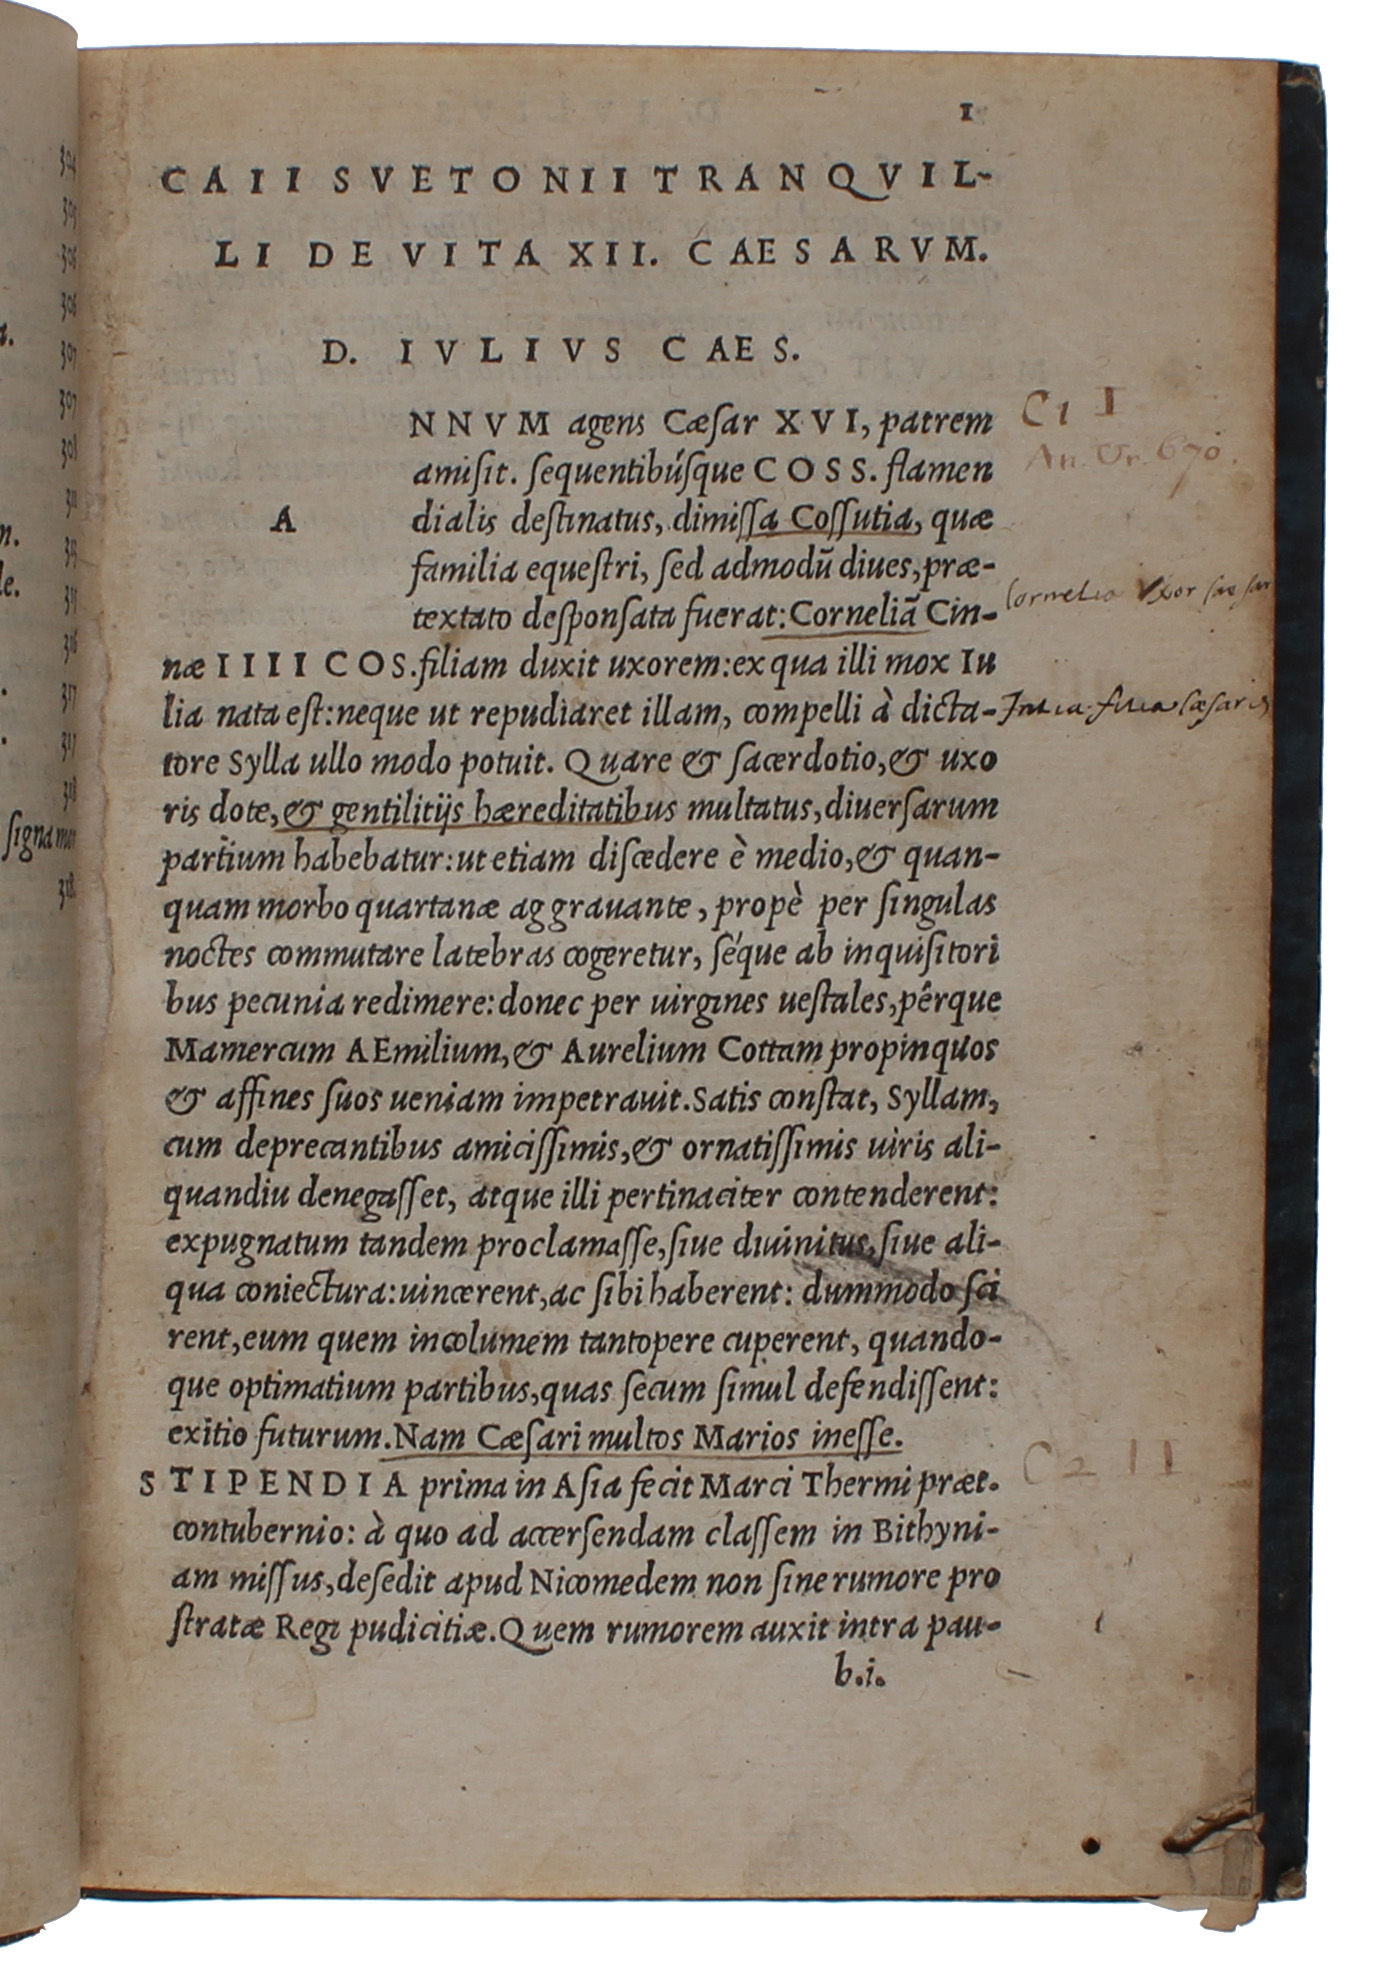 1
CAII SVETONII TRANQVIL-
LI DE VITA XII. CAESARVM.
D. IVLIVS CAES.
NNVM agens Cæſar XVI, patrem
amiſit. ſequentibúſque COSS. flamen
A dialis deſtinatus, dimiſſa Coſſutia, quæ
familia equeſtri, ſed admodū diues, præ-
textato deſponſata fuerat: Corneliā Cin-
næ IIII COS. filiam duxit uxorem: ex qua illi mox Iu
lia nata eſt: neque ut repudiaret illam, compelli à dicta-
tore Sylla ullo modo potuit. Quare & ſacerdotio, & uxo
ris dote, & gentilitijs hæreditatibus multatus, diuerſarum
partium habebatur: ut etiam diſcedere è medio, & quan-
quam morbo quartanæ aggrauante, propè per ſingulas
noctes commutare latebras cogeretur, ſéque ab inquiſitori
bus pecunia redimere: donec per uirgines ueſtales, pérque
Mamercum AEmilium, & Aurelium Cottam propinquos
& affines ſuos ueniam impetrauit. Satis conſtat, Syllam,
cum deprecantibus amiciſſimis, & ornatiſſimis uiris ali-
quandiu denegaſſet, atque illi pertinaciter contenderent:
expugnatum tandem proclamaſſe, ſiue diuinitus, ſiue ali-
qua coniectura: uincerent, ac ſibi haberent: dummodo ſci
rent, eum quem incolumem tantopere cuperent, quando-
que optimatium partibus, quas ſecum ſimul defendiſſent:
exitio futurum. Nam Cæſari multos Marios ineſſe.
STIPENDIA prima in Aſia fecit Marci Thermi præt.
contubernio: à quo ad accerſendam claſſem in Bithyni-
am miſſus, deſedit apud Nicomedem non ſine rumore pro
ſtratæ Regi pudicitiæ. Quem rumorem auxit intra pau-
b.i.
C 1 I
An. Ur. 670.
Cornelia Vxor Cae sar
Iulia filia Cæsaris
C 2 II
394
395
306
306
307
307
308
311
313
315
316
317
317
318
ſigna
318.